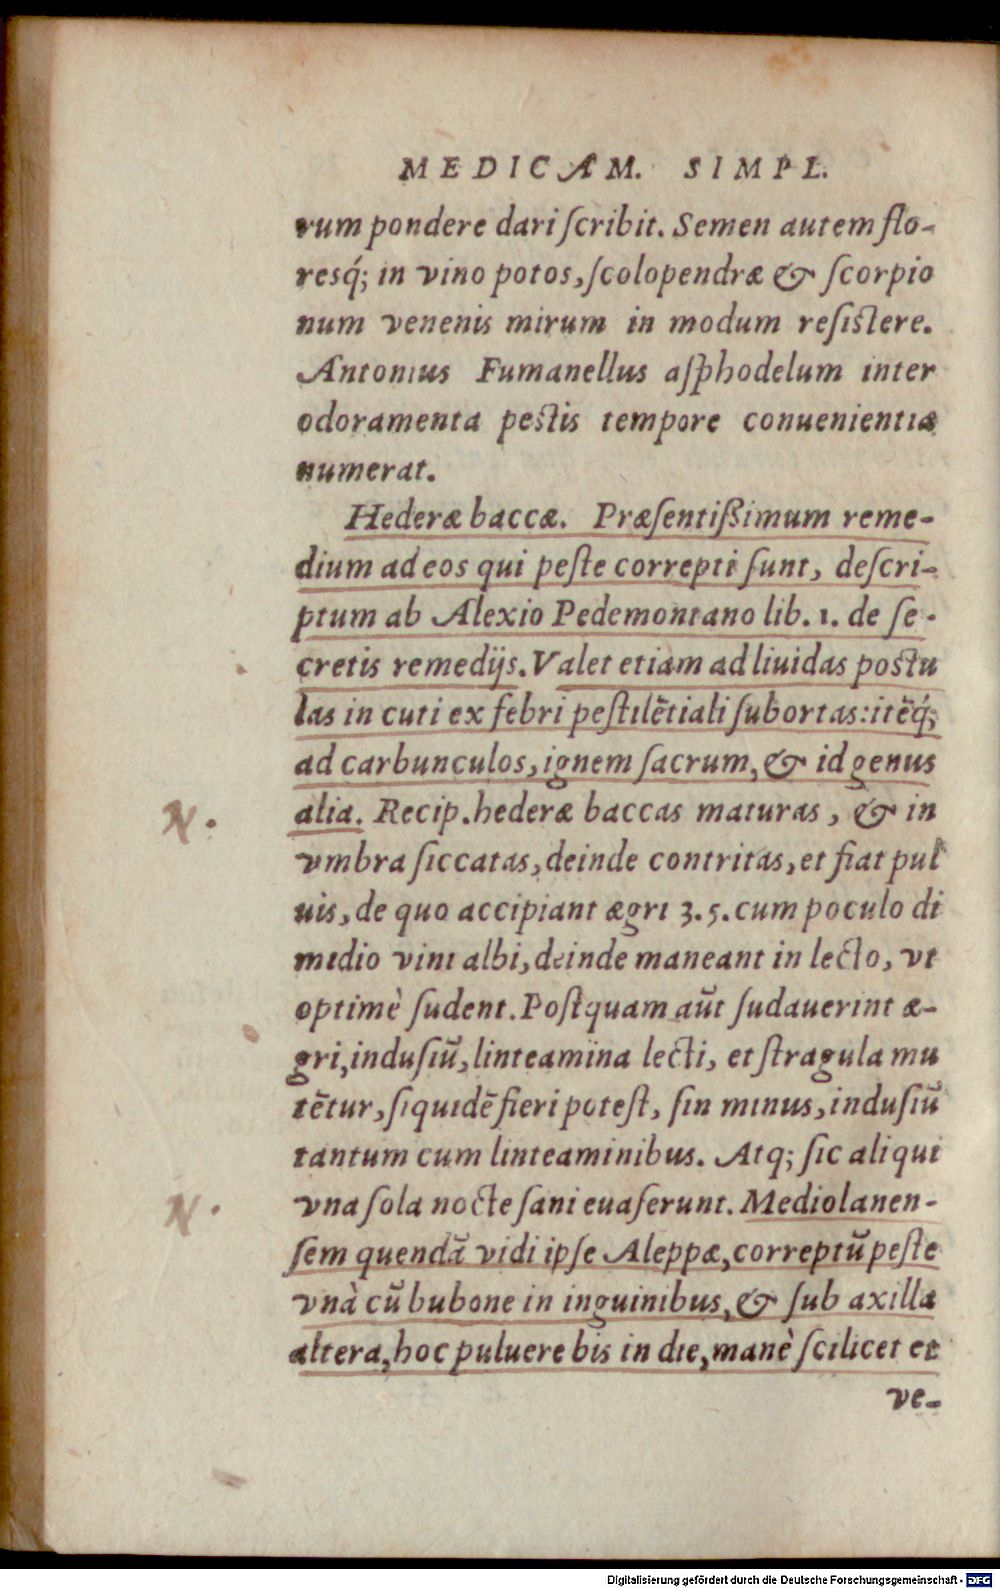 MEDICAM. SIMPL.
rum pondere dari ſcribit. Semen autem flo-
resq́; in vino potos, ſcolopendræ & ſcorpio
num venenis mirum in modum reſiſtere.
Antonius Fumanellus aſphodelum inter
odoramenta peſtis tempore conuenientia
numerat.
Hederæ baccæ. Præſentißimum reme-
dium ad eos qui peſte correpti ſunt, deſcri-
ptum ab Alexio Pedemontano lib. 1. de ſe-
cretis remedijs. Valet etiam ad liuidas poſtu
las in cuti ex febri peſtilẽtiali ſubortas: itẽq́;
ad carbunculos, ignem ſacrum, & id genus
alia. Recip. hederæ baccas maturas, & in
N.
vmbra ſiccatas, deinde contritas, et fiat pul
uis, de quo accipiant ægri ʒ. 5. cum poculo di
midio vini albi, deinde maneant in lecto, vt
optimè ſudent. Poſtquam aũt ſudauerint æ-
gri, induſiũ, linteamina lecti, et ſtragula mu
tẽtur, ſiquidẽ fieri poteſt, ſin minus, induſiũ
tantum cum linteaminibus. Atq; ſic aliqui
vna ſola nocte ſani euaſerunt. Mediolanen-
N.
ſem quendã vidi ipſe Aleppæ, correptũ peſte
vnà cũ bubone in inguinibus, & ſub axilla
altera, hoc puluere bis in die, manè ſcilicet et
ve-
Digitalisierung gefördert durch die Deutsche Forschungsgemeinschaft - DFG